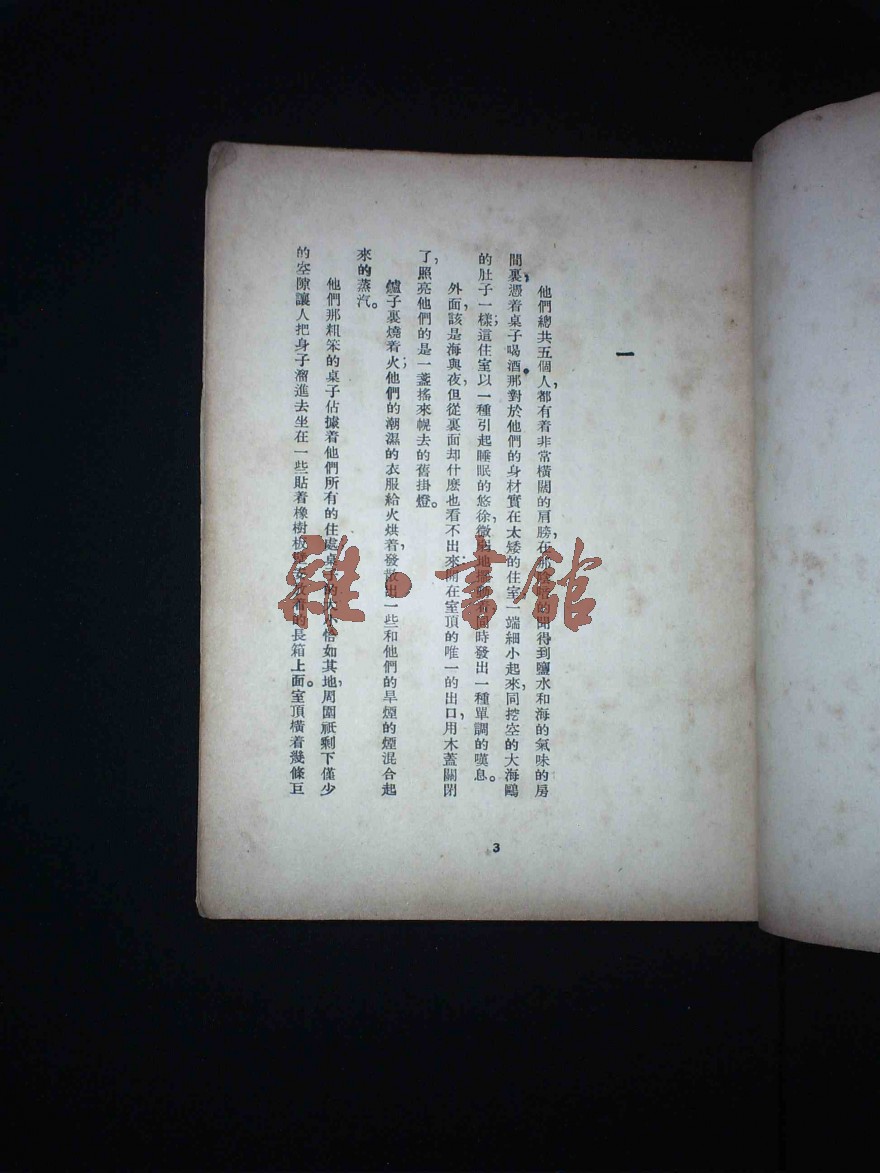 一
他們總共五個人，都有着非常橫闊的肩膀，在那陰暗的聞得到鹽水和海的氣味的房
間裏，憑着桌子喝酒。那對於他們的身材實在太矮的住室，一端細小起來，同挖空的大海鷗
的肚子一樣；這住室以一種引起睡眠的悠徐，微弱地搖動着，同時發出一種單調的嘆息。
外面，該是海與夜，但從裏面却什麽也看不出來：開在室頂的唯一的出口，用木蓋關閉
了，照亮他們的是一盞搖來幌去的舊掛燈。
爐子裏燒着火；他們的潮濕的衣服給火烘着，發散出一些和他們的旱煙的煙混合起
來的蒸汽。
他們那粗笨的桌子佔據着他們所有的住處；桌子的大小恰如其地，周圍祇剩下僅少
的空隙讓人把身子溜進去坐在一些貼着橡樹板壁安放着的長箱上面。室頂橫着幾條巨
3
雜·書館